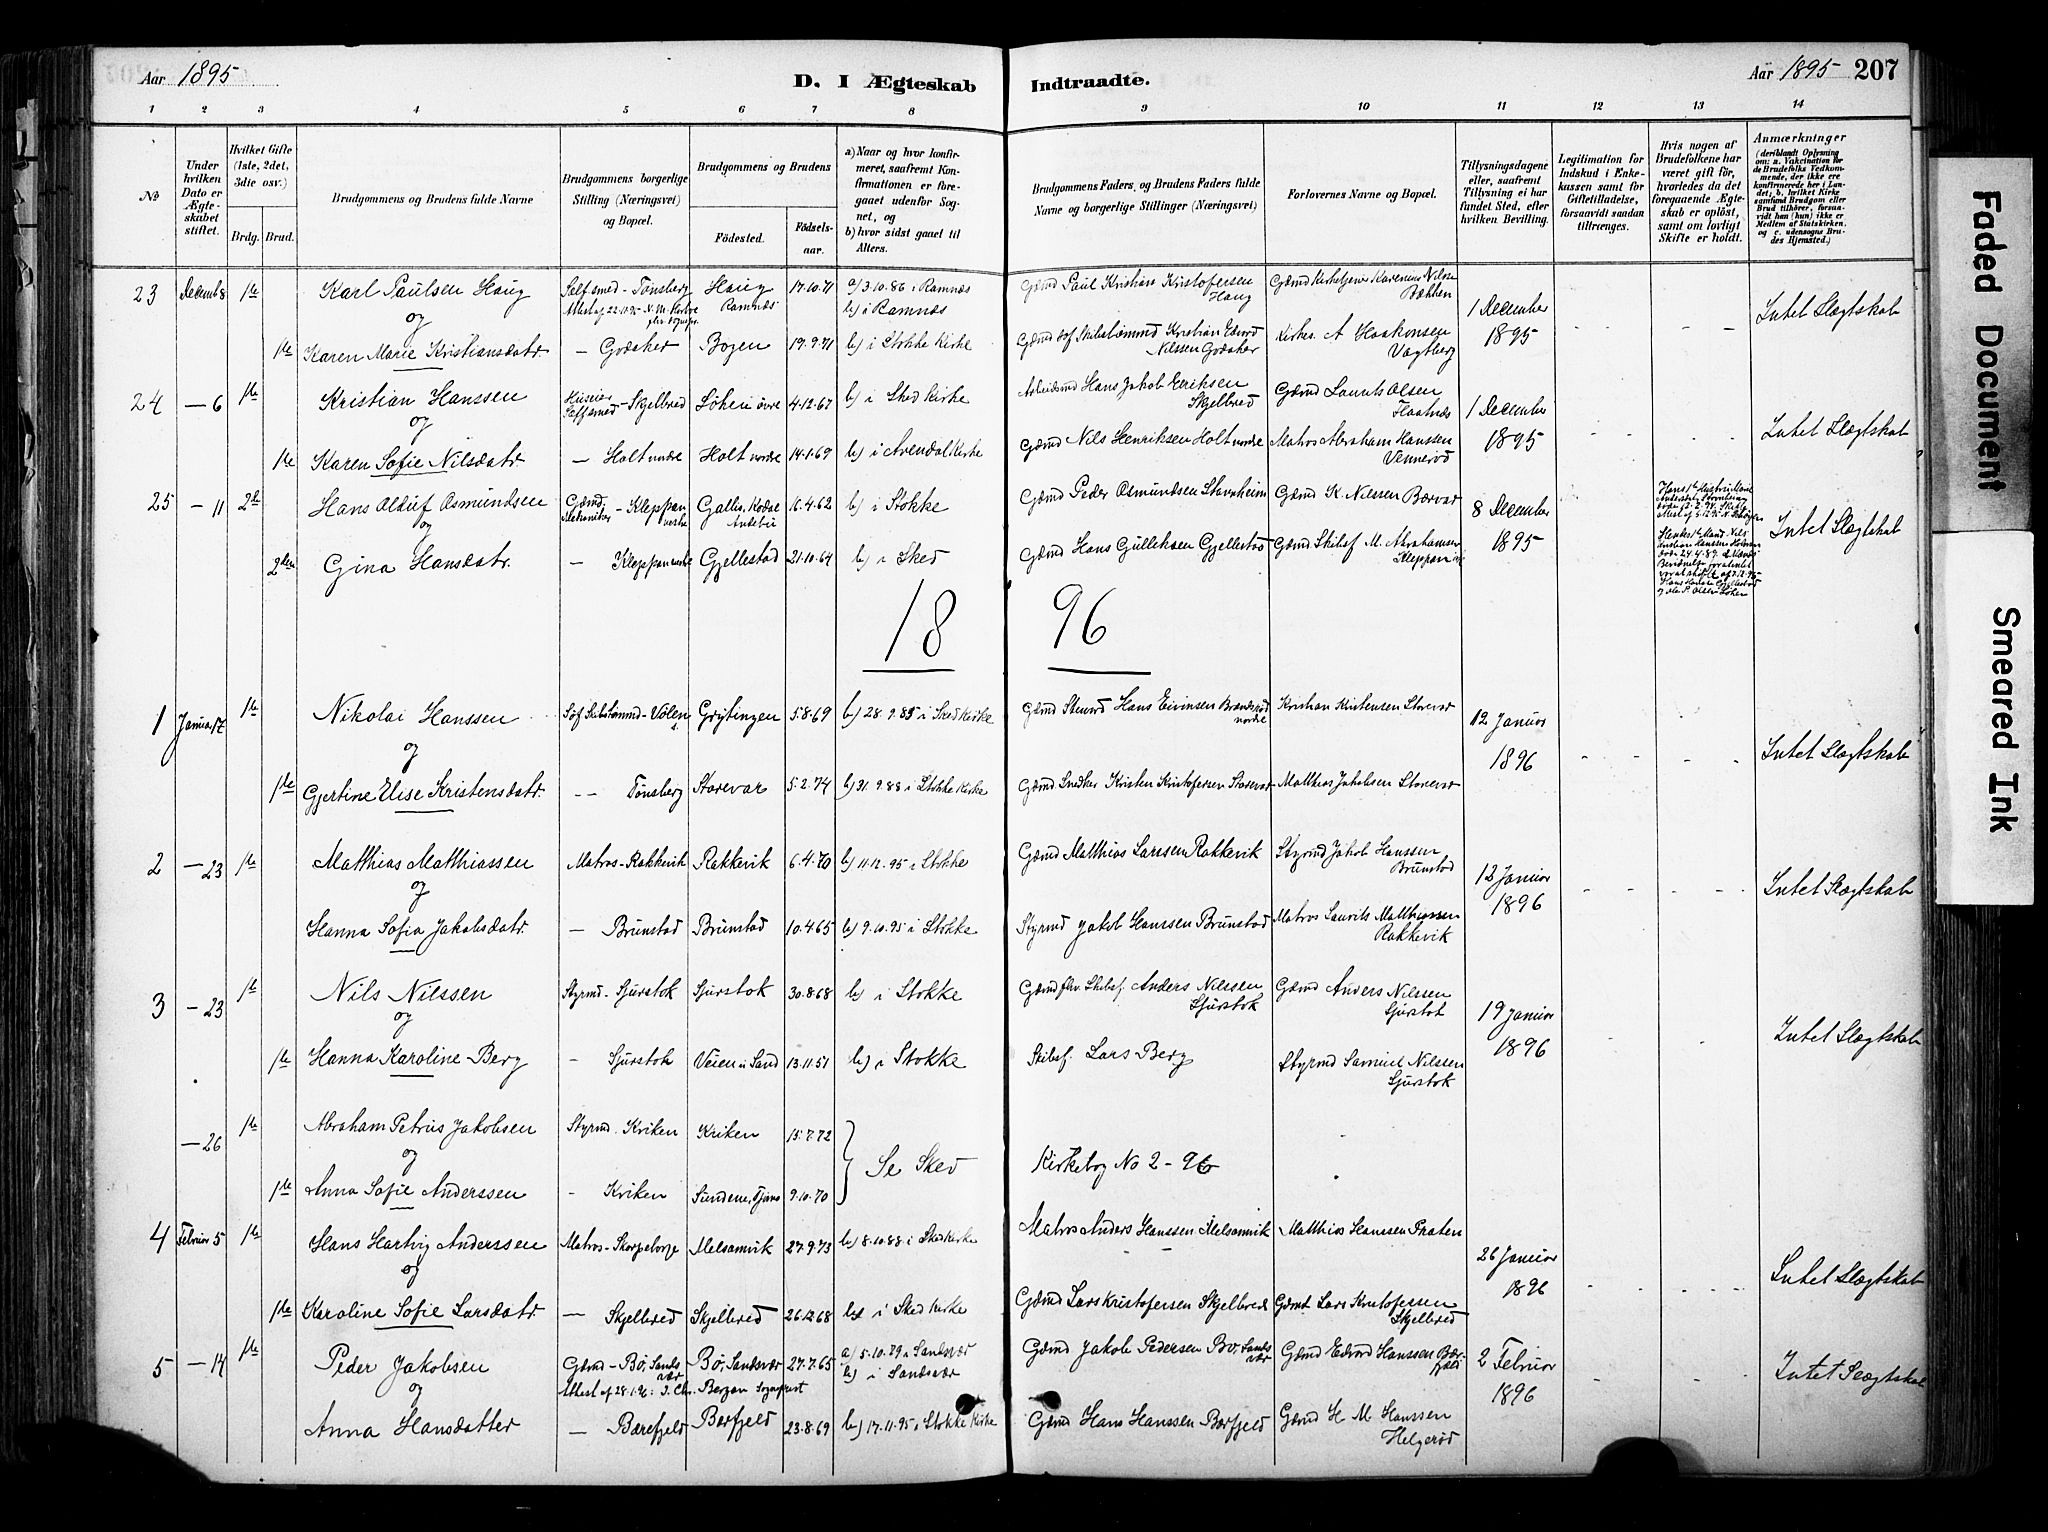 Aar 1895
D. I Ægteskab Indtraadte.
Aar 1895 207
1 2 3 4 5 6 7 8 9 10 11 12 13 14
No
Under hvilken Dato er Ægteskabet stiftet.
Hvilket Gifte (1ste, 2det, 3die osv.)
Brdg. Brud.
Brudgommens og Brudens fulde Navne
Brudgommens borgerlige Stilling (Næringsvei) og Bopæl.
Brudgommens og Brudens
Fødested. Fødselsaar.
a) Naar og hvor konfirmeret, saafremt Konfirmationen er foregaaet udenfor Sognet, og
b) hvor sidst gaaet til Alters.
Brudgommens Faders, og Brudens Faders fulde Navne og borgerlige Stillinger (Næringsvei)
Forlovernes Navne og Bopæl.
Tillysningsdagene eller, saafremt Tillysning ei har fundet Sted, efter hvilken Bevilling.
Legitimation for Indskud i Enkekassen samt for Giftetilladelse, forsaavidt saadan tiltrænges.
Hvis nogen af Brudefolkene har været gift før, hvorledes da det foregaaende Ægteskab er opløst, samt om lovligt Skifte er holdt.
Anmærkninger
(deriblandt Oplysning om: a. Vakcination for de Brudefolks Vedkommende, der ikke ere konfirmerede her i Landet; b. hvilket Kirkesamfund Brudgom eller Brud tilhører, forsaavidt han (hun) ikke er Medlem af Statskirken, og c. udensogns Brudes Hjemsted.)
23 Decemb 8 1ste Karl Paulsen Haug - Tønsberg Haug Ramnæs 17.10.71 a) 3.10.86 i Ramnæs b) i Ramnæs Gdmd Paul Kristian Kristofersen Haug Bækken 1 December 1895 Intet Slægtskab
og
1ste Karen Marie Kristiansdatr - Godaker Bogen 19.9.71 b) i Stokke Kirke Nilssen Godaker A Haakonsen Vagtberg
24 - 6 1ste Kristian Hanssen - Skjelbred Løhen øvre 4.12.67 b) i Sked Kirke Hans Jakob Eriksen Skjelbred Gdmd Laurits Olsen Flaatnæs 1 December 1895 Intet Slægtskab
og
1ste Karen Sofie Nilsdatr - Holt nordre Holt nordre 14.1.69 b) i Arendal Kirke Gdmd Nils Henriksen Holt nordre Matros Abraham Hanssen Vennerød
25 - 11 2det Hans Oluf Osmundsen - Kleppan Andebu 16.4.62 b) i Stokke Gdmd Peder Osmundsen Gdmd K. Nilssen Borvar 8 December 1895 Intet Slægtskab
og
2den Gina Hansdatr. - Kleppan Gjellestad 21.10.64 b) i Sked Gdmd Hans Gulliksen Gjellestad Gdmd Skibsf M. Abrahamsen Kleppan
18 96
1 Januar 17 1ste Nikolai Hanssen Grytingen 5.8.69 b) 28.9.85 i Sked Kirke Kristian Kristensen Storevar 12 Januar 1896 Intet Slægtskab
og
1ste Gjertine Elise Kristensdatr. -- Tønsberg Storevar 5.2.74 b) 31.9.88 i Stokke Kirke Gdmd Snedker Kristen Kristofersen Storevar Matthias Jakobsen Storevar
2 - 23 1ste Matthias Matthiassen Matros - Rakkevik Rakkevik 6.4.70 b) 11.12.95 i Stokke Gdmd Matthias Larssen Rakkevik Styrmd Jakob Hanssen Brunstad 12 Januar 1896 Intet Slægtskab
og
Hanna Sofia Jakobsdatr. - Brunstad Brunstad 10.4.65 b) 9.10.95 i Stokke Styrmd Jakob Hanssen Brunstad Matros Laurits Matthiassen Rakkevik
3 - 23 1ste Nils Nilssen Styrmd - Sjurstok Sjurstok 30.8.68 b) i Stokke Anders Nilssen Sjurstok Gdmd Anders Nilssen Sjurstok 19 Januar 1896 Intet Slægtskab
og
1ste Hanna Karoline Berg - Sjurstok Veien i Sand 13.11.51 b) i Stokke Skibsf. Lars Berg Styrmd Samuel Nilssen Sjurstok
- 26 1ste Abraham Petrus Jakobsen Styrmd. Kriken Kriken 15.7.72 Se Sked Kirkebog No 2-96
og
1ste Anna Sofie Anderssen - Kriken Sundene, Tjømø 9.10.70
4 Februar 5 1ste Hans Hartvig Anderssen Matros - Melsomvik 27.9.73 b) 8.10.88 i Sked Kirke Matros Anders Hanssen Melsomvik Matthias Hanssen Praten 26 Januar 1896 Intet Slægtskab
og
1ste Karoline Sofie Larsdatr - Skjelbred Skjelbred 26.12.68 b) i Sked Kirke Gdmd Lars Kristofersen Skjelbred Gdmd Lars Kristofersen Skjelbred
5 - 14 1ste Peder Jakobsen Gdmd - Bø, Sandsvær Bø, Sandsvær 27.7.65 a) 5.10.79 i Sandsvær b) i Sandsvær Gdmd Jakob Pedersen Bø, Sandsvær Gdmd Edvard Hanssen Bærfjeld 2 Februar 1896 Intet Slægtskab
Attest af 28.1.96: J. Chr. Berzon Sogneprest
og
Anna Hansdatter - Bærefjeld Bærfjeld 23.8.69 b) 17.11.95 i Stokke Kirke Gdmd Hans Hanssen Bærfjeld Gdmd H M Hanssen Helgerød
Faded Document
Smeared Ink